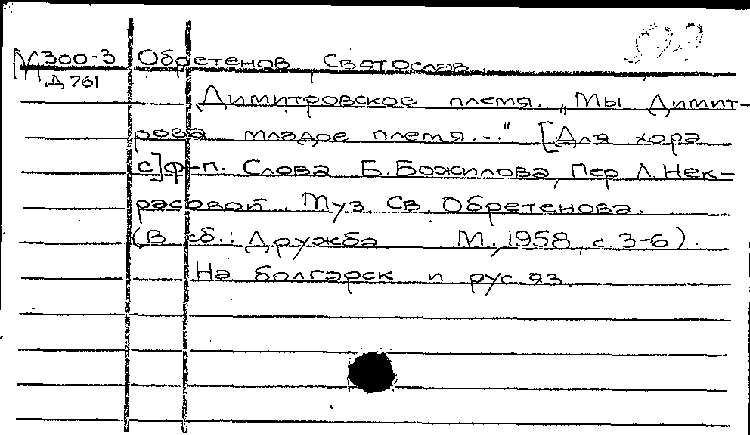 М 300-3 Обретенов Святослав
Д 761
Димитровское племя. „Мы Димит-
рова младое племя..." [Для хора
с] ф-п. Слова Б. Божилова, Пер Л. Нек-
расовой. Муз. Св. Обретенова.
(В сб.: Дружба М., 1958, с. 3-6).
На болгарск и рус. яз.